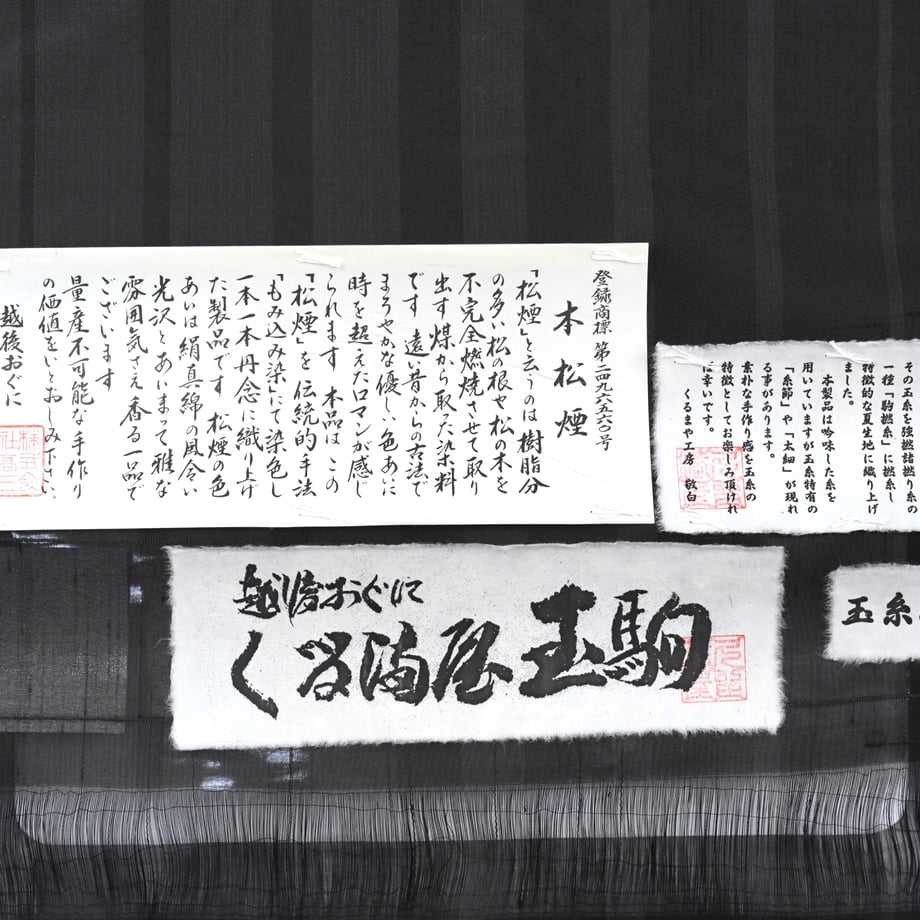 登録商標 第二四九六五六〇号
本松煙
「松煙」と云うのは樹脂分
の多い松の根や松の木を
不完全燃焼させて取り
出す煤から取った染料
です 遠い昔からの古法で
まろやかな優しい色あいに
時を超えたロマンが感じ
られます 本品はこの
「松煙」を伝統的手法
「もみ込み染」にて染色し
一本一本丹念に織り上げ
た製品です 松煙の色
あいは絹真綿の風合い
光沢とあいまって雅な
雰囲気さえ香る一品で
ございます
量産不可能な手作り
の価値をいとおしみ下さい
越後おぐに
その玉糸を強撚諸撚り糸の
一種「駒撚糸」に撚糸し
特徴的な夏生地に織り上げ
ました。
本製品は吟味した糸を
用いていますが玉糸特有の
「糸節」や「太細」が現れ
る事があります。
素朴な手作り感を玉糸の
特徴としてお楽しみ頂けれ
ば幸いです。
くるまや工房 敬白
越後おぐに
くるま屋 玉駒
玉糸